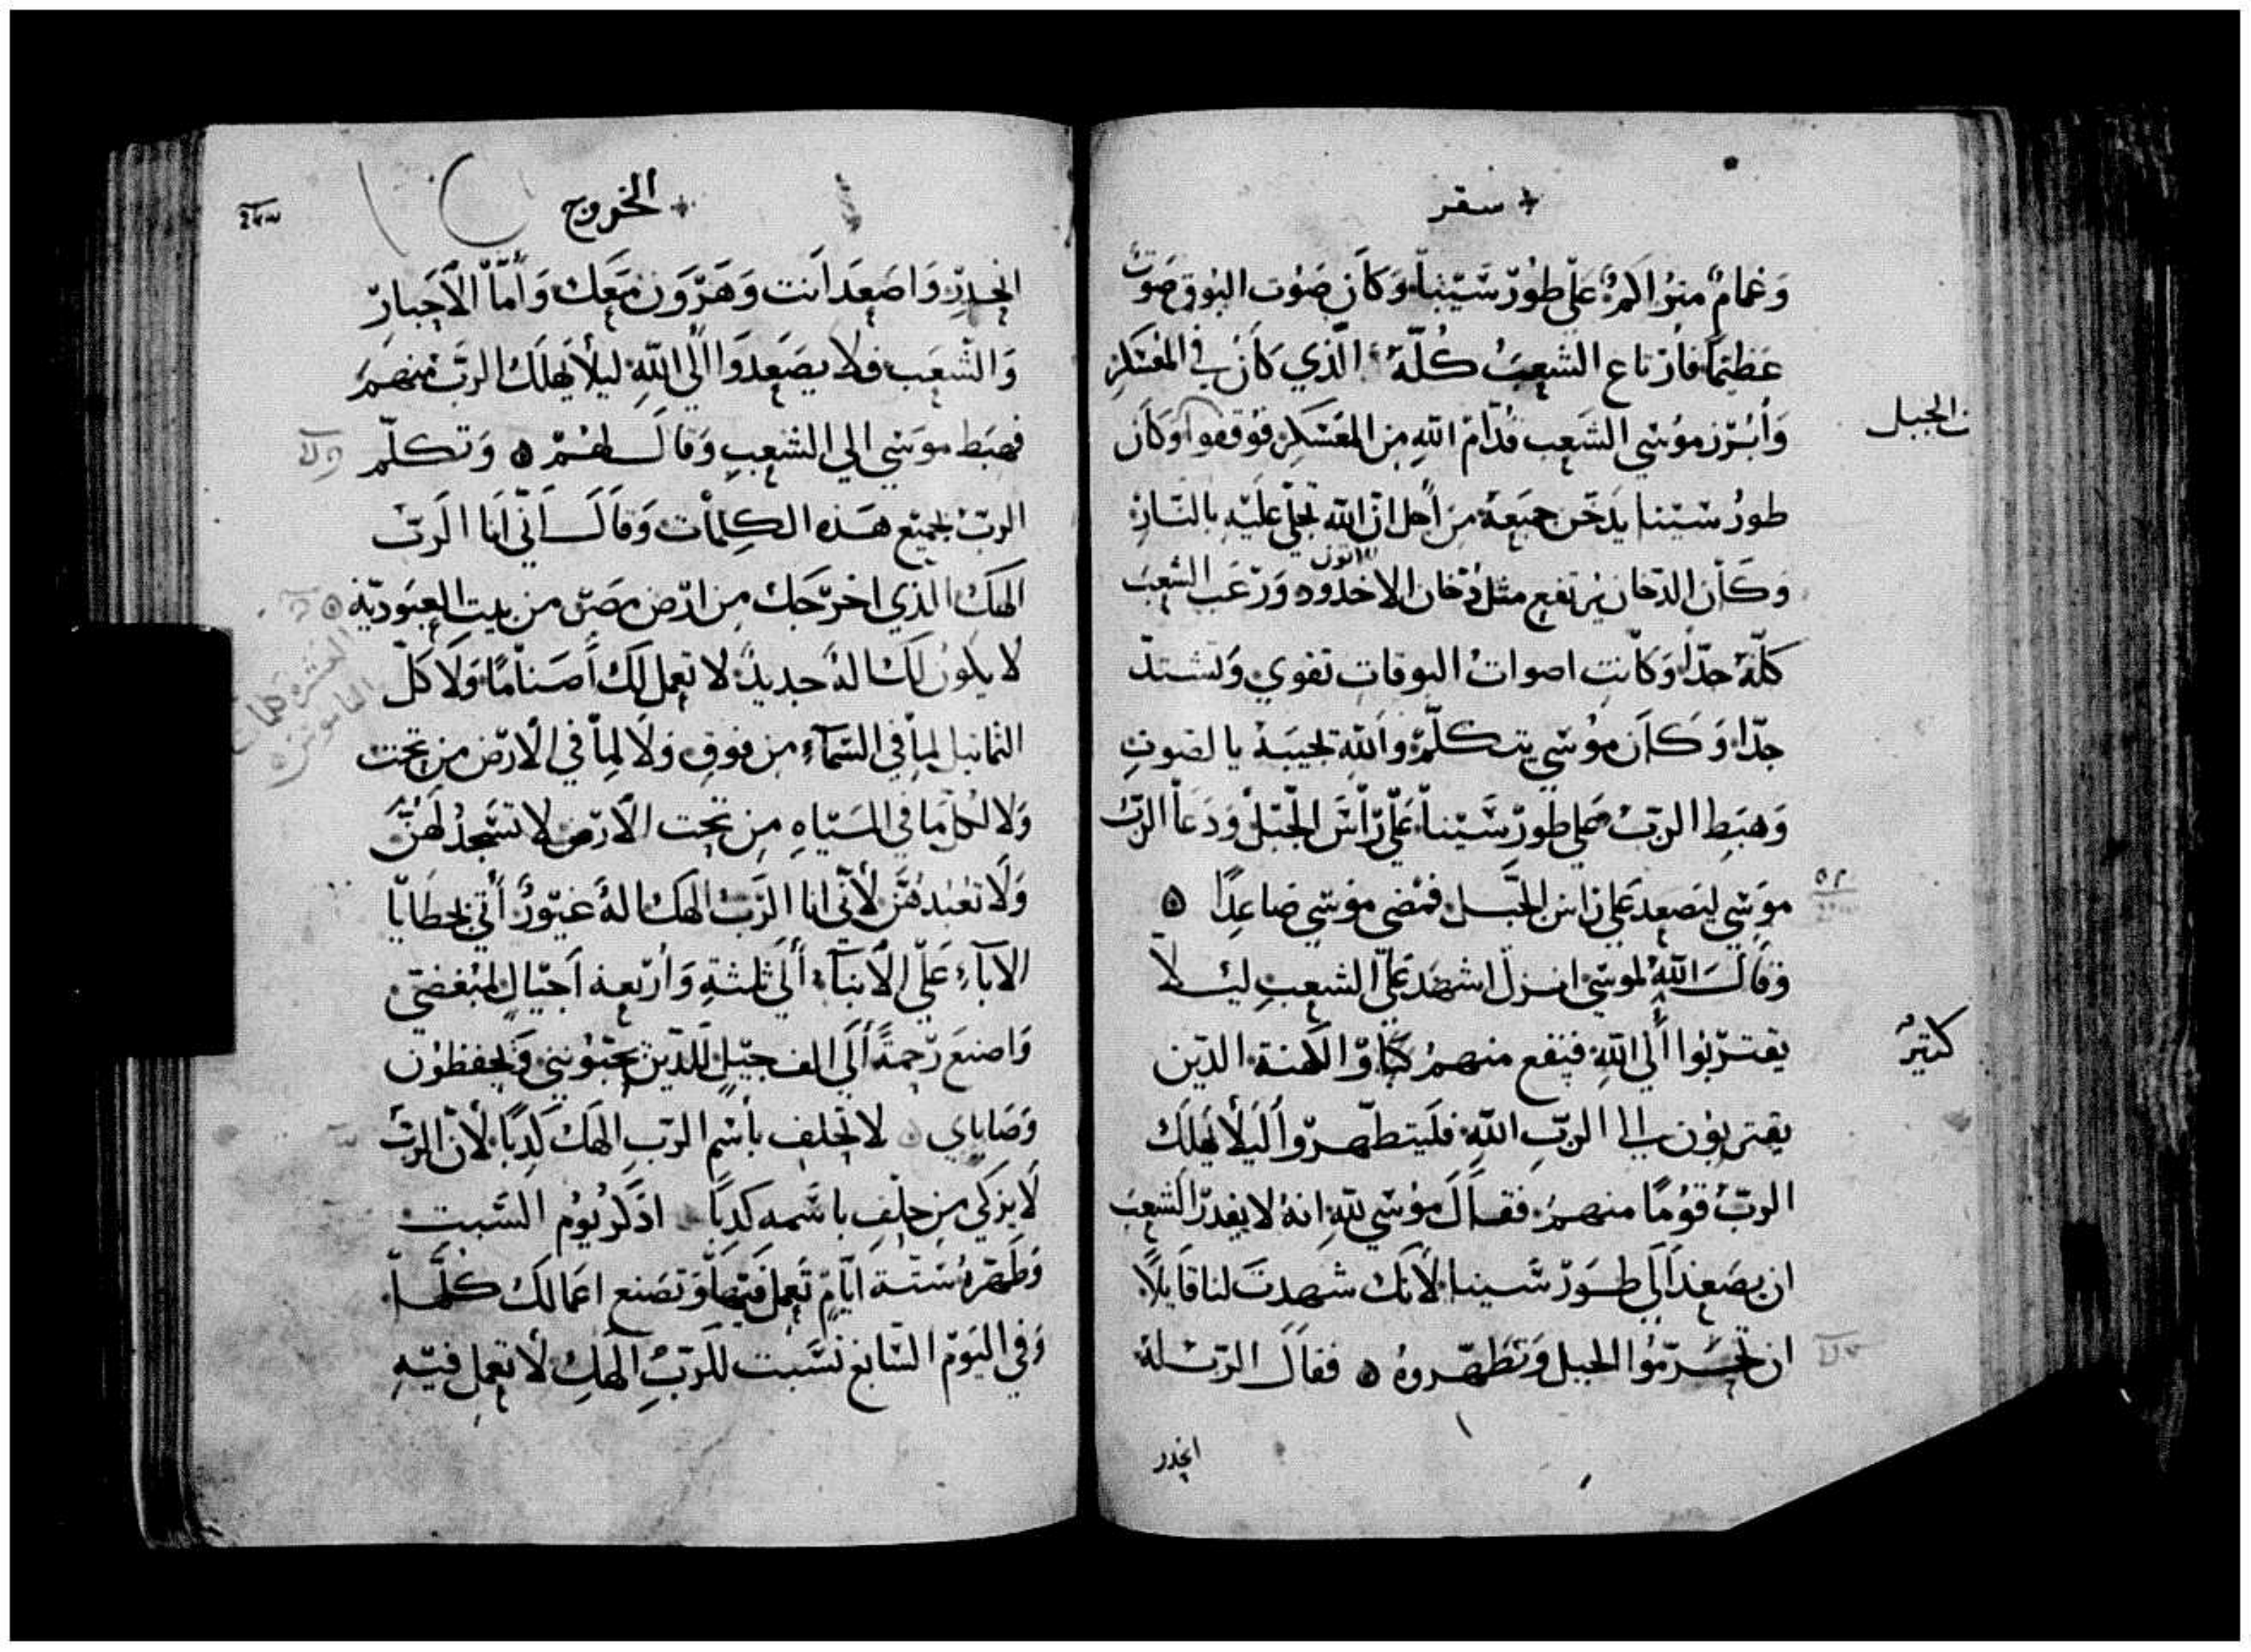 سفر
وَغمامٌ منيرًا لهم على طُورْ سَّيْنا وَكاَن صَوْت البُوق صَوتً
عَظيمًا فأرتاع الشعبُ كُلّهُ الَّذي كاَنَ في المعَسْكرِ
وَأبرَز مُوسَي الشعب قدّام اللهِ مِن المعَسْكرِ فوقفوا وَكاَن
ن الجبل
طورُ سَيْنا يدَخّن جميَعهُ من أجل انّ الله تجلّي علَيْهِ بالنّارِ
وَكاَن الدّخان يرتفع مثل دُخان الاخدُود وَرَعَب الشعبَ
اتون
كلّهُ جدّا وَكاَنت اصوات البوقات تقوي وَتشتدّ
جدّا وَكاَن موُسَي يتكلّم وَاللهِ تجيبَهُ بالصّوتِ
وَهبَط الربّ علي طورْ سَّيْنا عَلّي رَأسَ الجَّبَلْ وَدَعَا الربّ
موسَي ليَصعد عَلي رَاسَ الجبَل فمضي مُوسَي صَاعِدًا ٥
وَقاَلَ اللهُ لموسَي انزل اشهَد عَلّي الشعبِ ليلا
يقترّبُوا إلي اللهِ فيقع منهمْ كثيرٌ وَالكهنة الذين
كثيرٌ
يقتربوُن إلي الربّ اللهِ فليتطهّروا ليَلا يُهلك
الربّ قوُمًا منهم فقاَلَ موُسَي للهِ انهُ لا يقدرْ الشعبَ
ان يصَعدَ إلي طوَرْ سَّينا لأنكَ شهدتَ لنا قايلاً
ان تحرّموُا الجبل وَتطَهّروهُ ٥ فقاَل الربّ لهُ
انحدر
الخروج
انحدِرّ وَاصَعِدَ اَنت وَهَرّوَن مَعَك وَأمّا الأحَبارّ
وَالشعب فلا يصَعدَوا إلي اللهِ ليلا يُهلكَ الربّ منهمَ
فهبَط موسَي إلي الشعبِ وَقالَ لهُمْ ٥ وَتكلّم
الربّ بجميَع هَذه الكِلمات وَقاَلَ اَنّي اَنا الَربّ
الهَك الذي اخرّجَك مِن ارّض مصَرّ من بيت العبَوديّه ٥
لا يكوُن لكَ الهً جديدً لا تعمل لكَ أصَنامًا وَلا كلّ
العشر كلمات
التماثيل لمِا في السَّمآءِ مِن فوقِ وَلا لمِا في الأرّض من تحت
الناموس
وَلا لكل مَا في المَياهِ مِن تحت الأرّض لا تسَجدُ لهُنَّ
وَلا تعُبدهُنَّ لأَنّي انا الَربّ الهَك الهً غيَوُرً أُتي بخطَايا
الآبآءِ عَلّي الأبنآءِ إلي ثلثةِ وَأربَعة اَجيالٍ لمبُغضيّ
وَاصنعَ رّحمةً إلي الف جيَلٍ للّذين يحبّوُنني وَيحفظوُن
وَصَاياي لا تحلف بأسَمِ الربّ الهَك كَذِبًا لأَنّ الربّ
لا يزكي مِن حلفِ باسَمه كذِبًا اذكرُ يوُم السَّبتِ
وَطهّرهُ سَتّة أيّامٍ تعمل فيَها وَتصَنع اعَمالكَ كلّها
وَفي اليَومّ السَّابع سَّبت للرّبِّ الهكِ لا تعمل فيَهِ